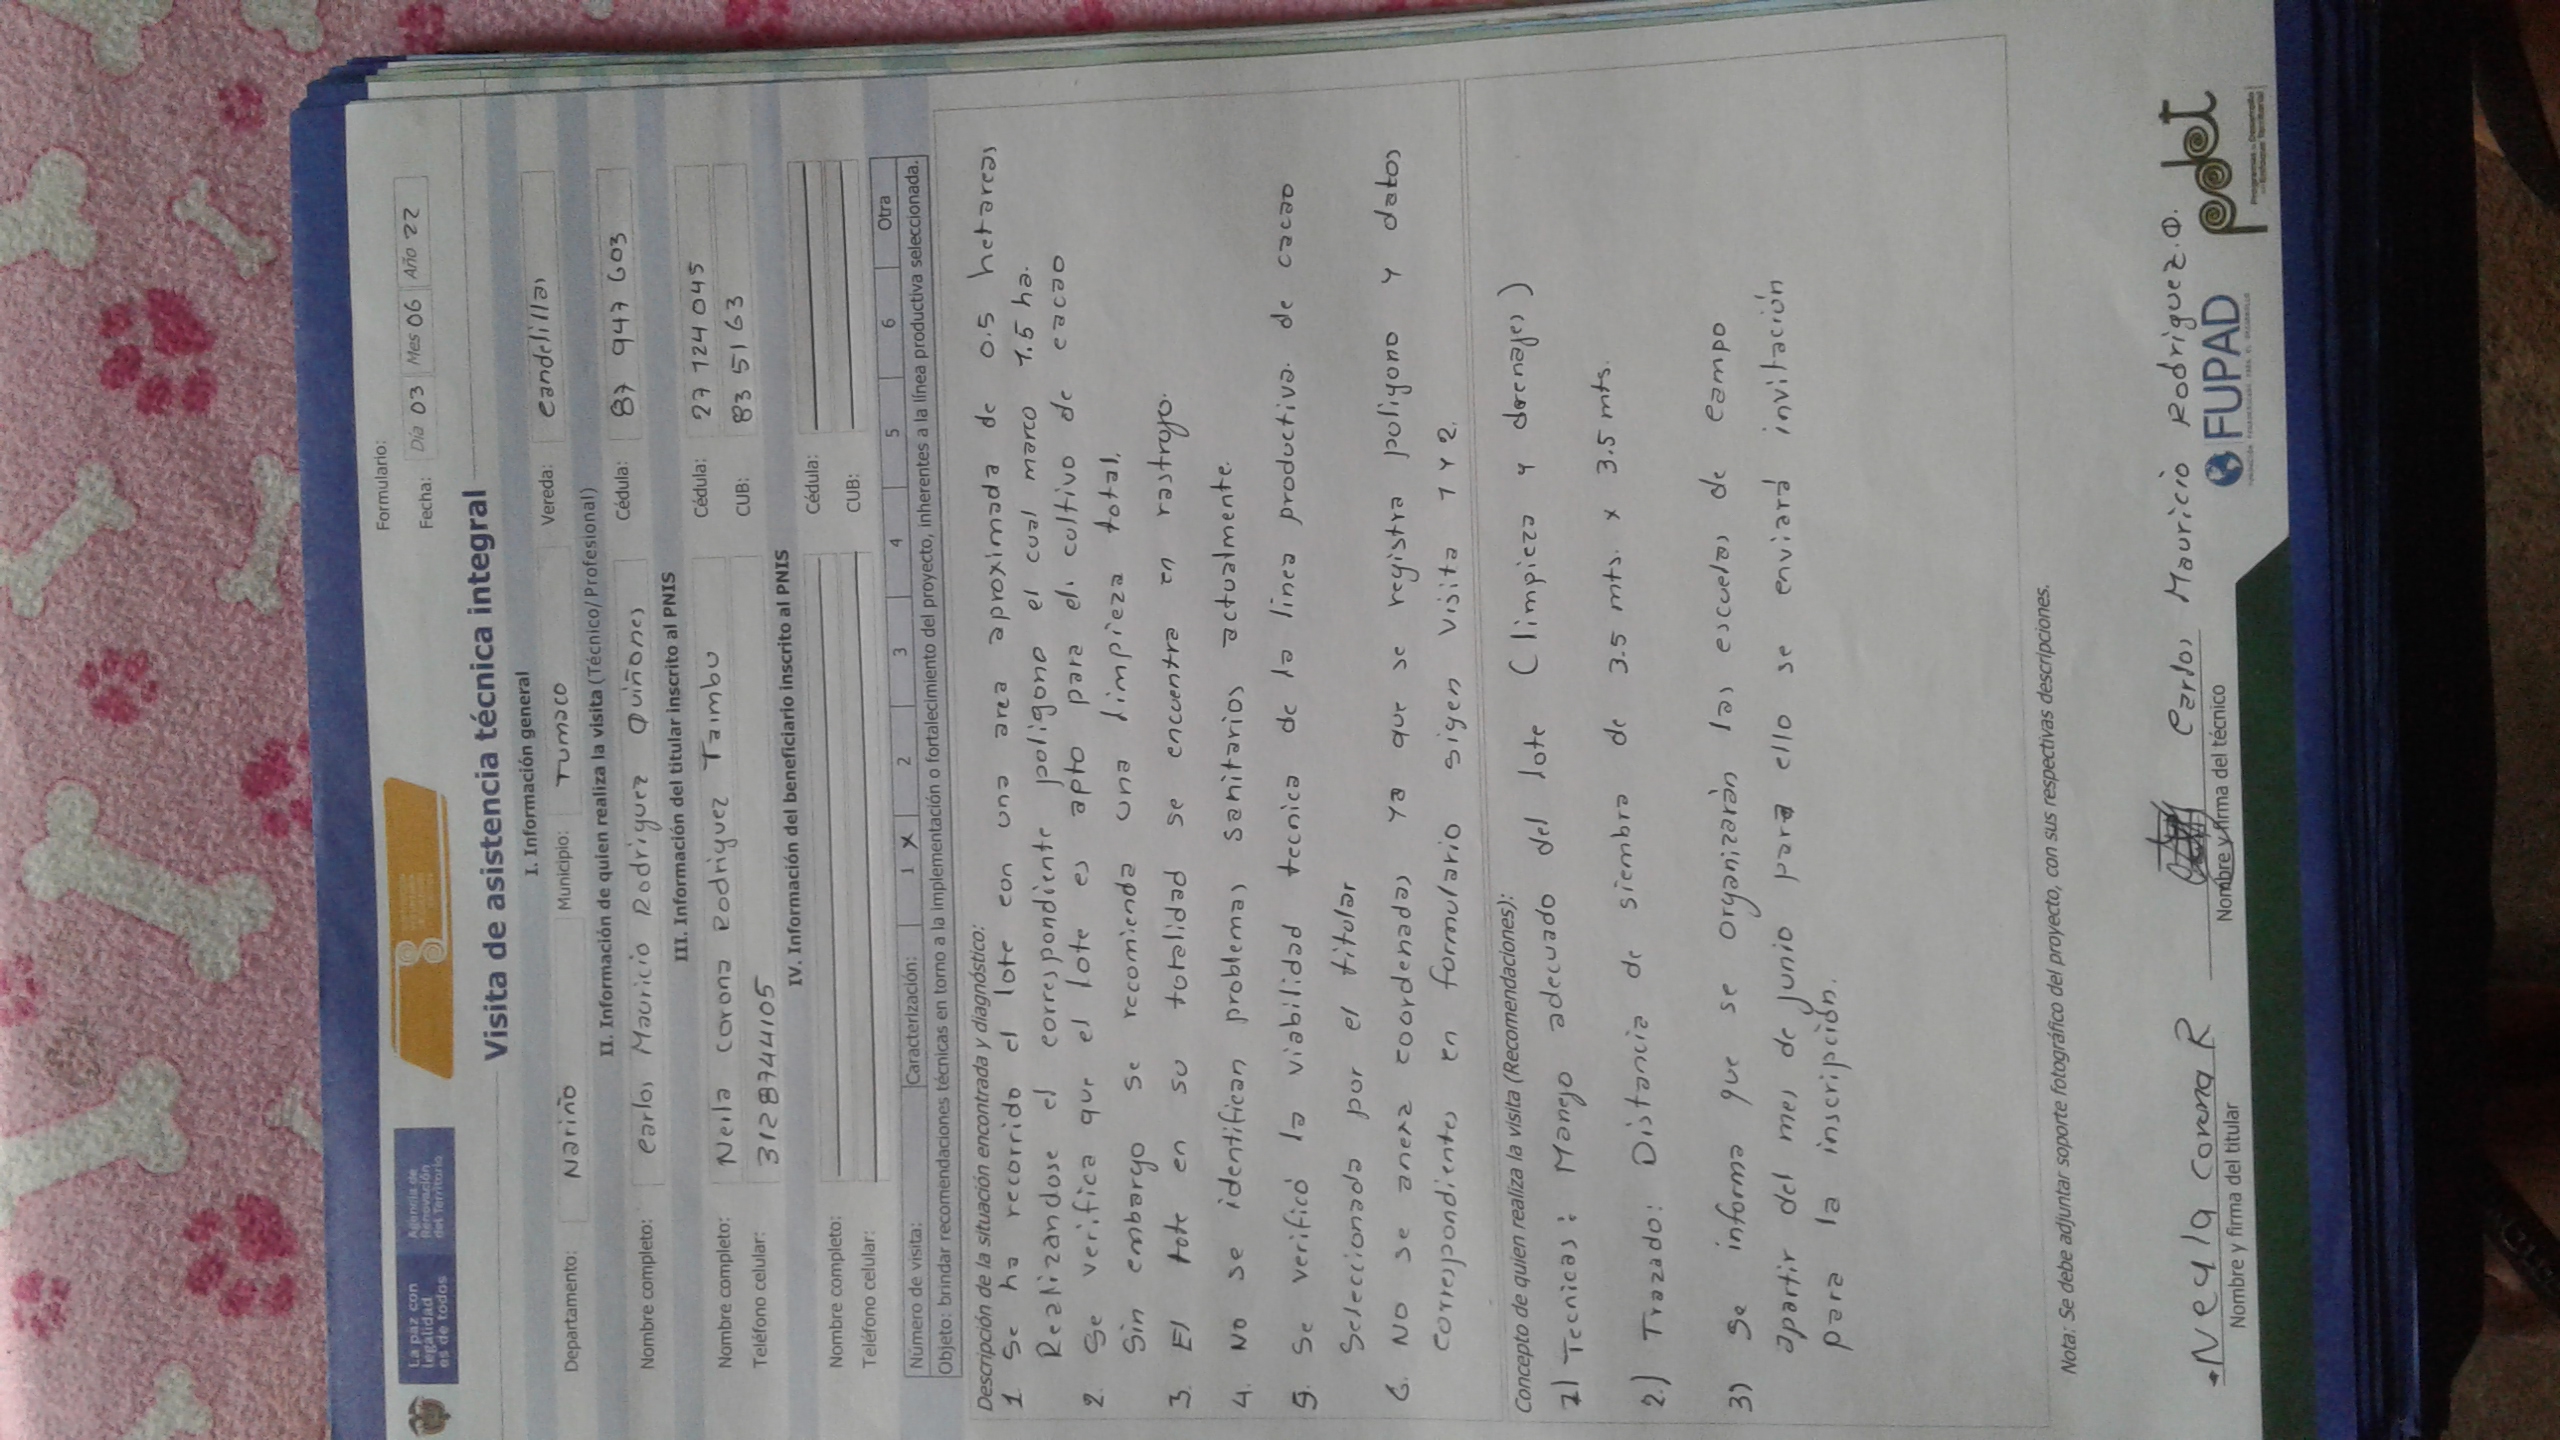 La paz con
legalidad
es de todos
Agencia de
Renovación
del Territorio
Formulario:
Fecha: Día 03 Mes 06 Año 22
Visita de asistencia técnica integral
I. Información general
Departamento: Nariño Municipio: Tumaco Vereda: candelillas
II. Información de quien realiza la visita (Técnico/Profesional)
Nombre completo: Carlos Mauricio Rodriguez Quiñones Cédula: 87 947 603
III. Información del titular inscrito al PNIS
Nombre completo: Neila Corona Rodriguez Taimbu Cédula: 27 124 045
Teléfono celular: 3128744105 CUB: 83 51 63
IV. Información del beneficiario inscrito al PNIS
Nombre completo: Cédula:
Teléfono celular: CUB:
Número de visita: Caracterización: 1 X 2 3 4 5 6 Otra
Objeto: brindar recomendaciones técnicas en torno a la implementación o fortalecimiento del proyecto, inherentes a la línea productiva seleccionada.
Descripción de la situación encontrada y diagnóstico:
1. Se ha recorrido el lote con una area aproximada de 0.5 hetareas
Realizandose el correspondiente poligono el cual marco 1.5 ha.
2. Se verifica que el lote es apto para el cultivo de cacao
Sin embargo se recomienda una limpieza total.
3. El lote en su totalidad se encuentra en rastrojo.
4. No se identifican problemas sanitarios actualmente.
5. Se verificó la viabilidad tecnica de la linea productiva de cacao
Seleccionada por el titular
6. No se anexa coordenadas ya que se registra poligono y datos
Correspondientes en formulario sigen visita 1 y 2.
Concepto de quien realiza la visita (Recomendaciones):
1) Tecnicas: Manejo adecuado del lote (limpieza y drenajes)
2.) Trazado: Distancia de siembra de 3.5 mts. x 3.5 mts.
3) Se informa que se organizarán las escuelas de campo
apartir del mes de junio para ello se enviará invitación
para la inscripción.
Nota: Se debe adjuntar soporte fotográfico del proyecto, con sus respectivas descripciones.
*Neyla Corona R
Nombre y firma del titular
Carlos Mauricio Rodriguez.Q.
Nombre y firma del técnico
FUPAD
pdet
Programas de Desarrollo
con Enfoque Territorial